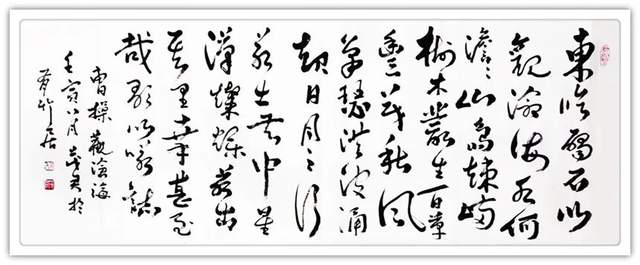 東臨碣石以
觀滄海水何
澹々山島竦峙
樹木叢生百草
豐茂秋風
蕭瑟洪波涌
起日月之行
若出其中星
漢燦爛若出
其里幸甚至
哉歌以詠誌
曹操觀滄海
壬寅八月於
竹居